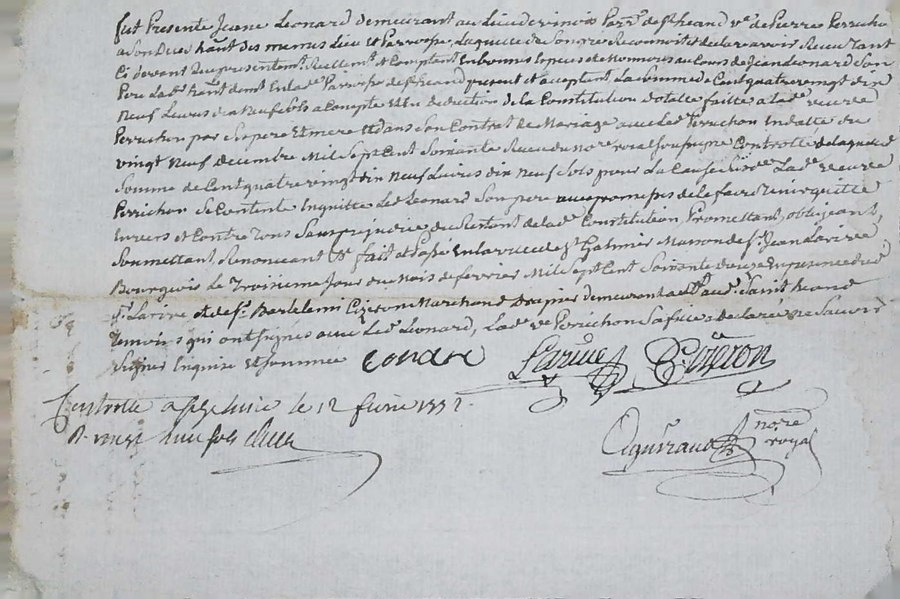 fut Presente Jeane Leonard demeurant au Lieu de vinois Parr.e de St heand v.e de Pierre Perrichon
a Son vivant hant des memes Lieu et Parroisse, Laquelle de Son gré Reconnoit et declare avoir Reçu tant
Cy devant que presentem.t Réellem.t et Comptant En bonnes Especes de Monnoies au Cours de Jean Leonard Son
Pere Lad. hant demt En lad.e Parroisse de St heand present et acceptant La Somme de Cent quatre vingt dix
Neuf Livres dix Neuf Sols a Compte Et En deduction de la Constitution dotalle faitte a Lad.e veuve
Perrichon par Son pere Et mere Et dans Son Contrat de Mariage avec Led. Perrichon En datte du
vingt Neuf decembre Mil Sept Cent Soixante Reçu du no.re royal Soussigné Controllé de laquelle
Somme de Cent quatre vingt dix Neuf Livres dix Neuf Sols pour La Cause Susd.e Lad.e veuve
Perrichon Se Contente En quitte Led. Leonard Son pere avec promesses de le faire tenir quitte
Envers et Contre tous Sans prejudice du Restant de lad.e Constitution, Promettant, obligeant,
Soumettant, Renonceant &.a fait et Passé En la ville de St Galmier Maison de S.r Jean Larive
Bourgeois le Troisieme Jour du Mois de fevrier Mil Sept Cent Soixante douze En presence dud.
S.r Larive et de S.r Bartelemi Cizeron Marchand Drapier demeurant aud. Saint heand
Temoins qui ont Signés avec Led. Leonard, Lad.e v.e Perrichon Sa fille a declaré ne Savoir
Signer Enquise Et Sommée Leonard Larive Cizeron
Controllé a St Galmier le 12 fevrier 1772.
R vingt neuf sols
no.re royal